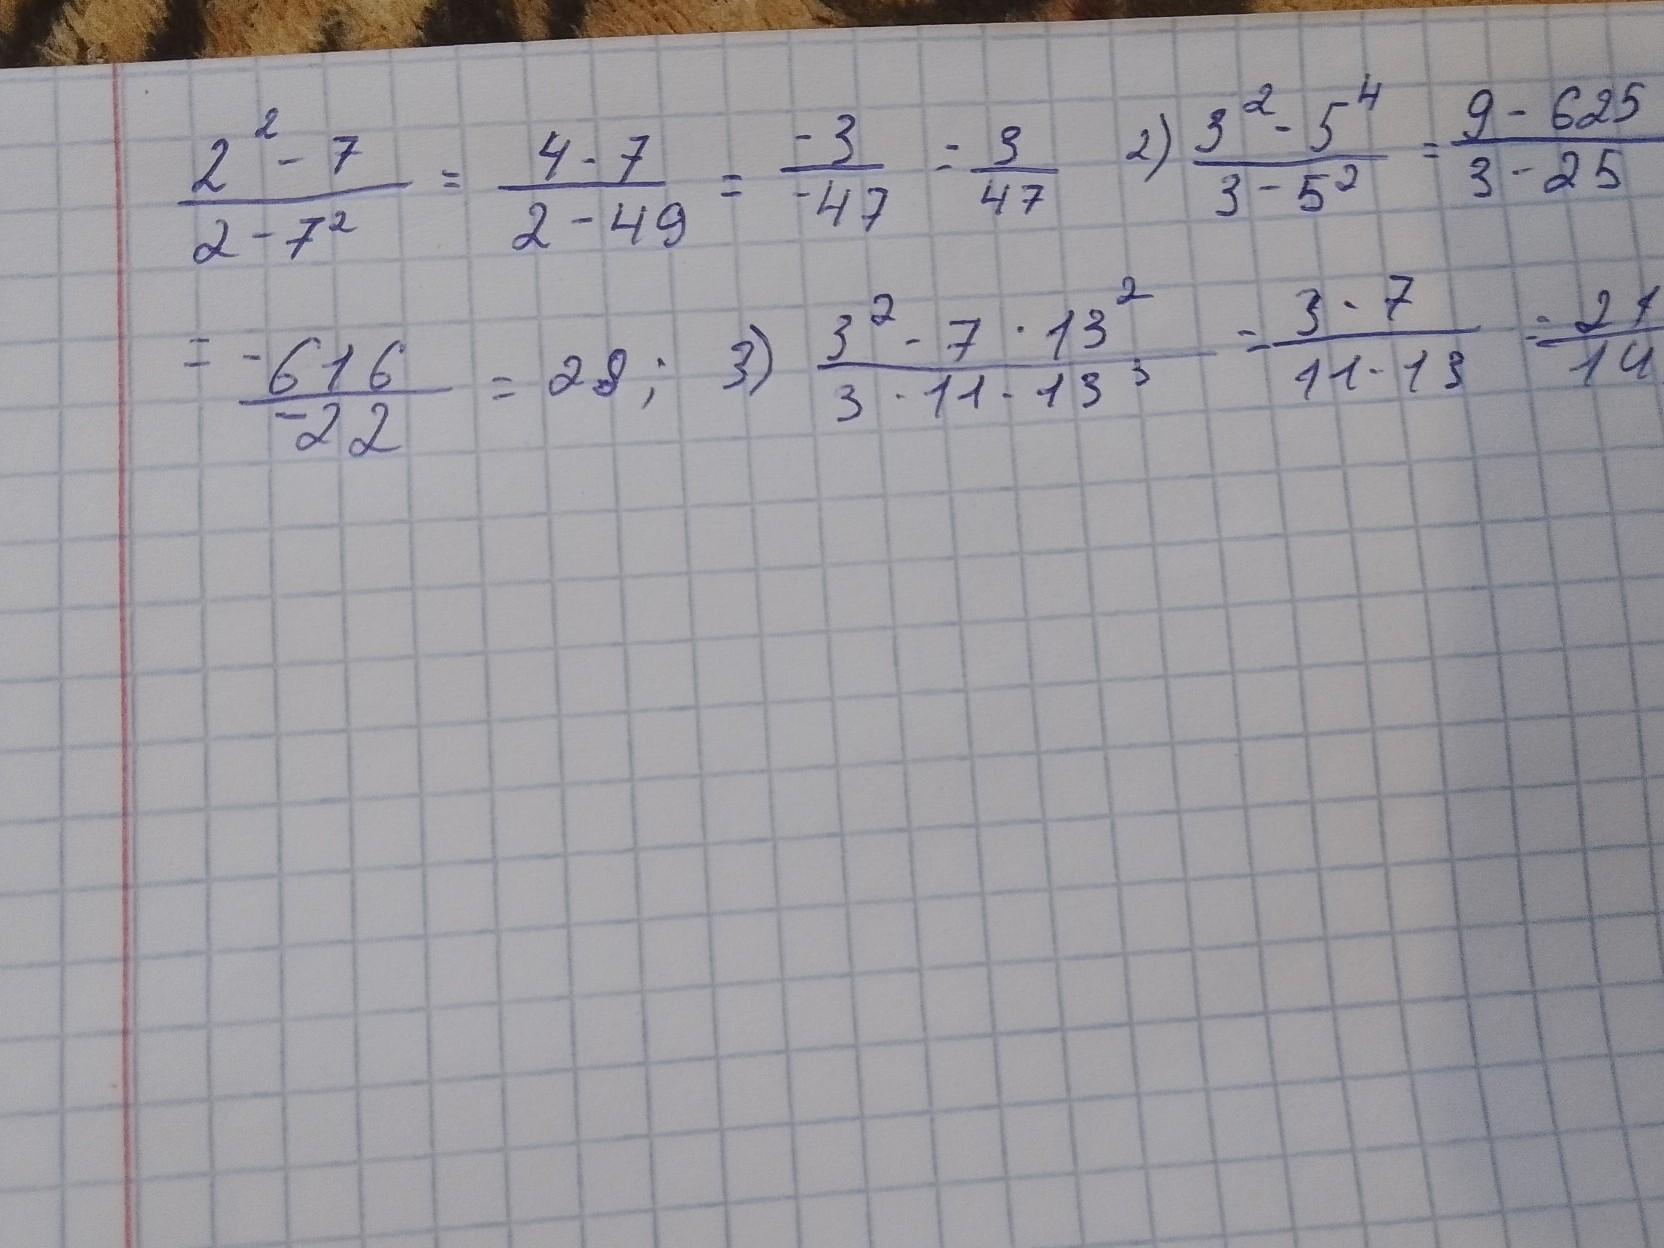 (2² - 7)/(2 - 7²) = (4 - 7)/(2 - 49) = (-3)/(-47) = 3/47 2) (3² - 5⁴)/(3 - 5²) = (9 - 625)/(3 - 25)
= (-616)/(-22) = 28; 3) (3² · 7 · 13²)/(3 · 11 · 13³) = (3 · 7)/(11 · 13) = 21/14